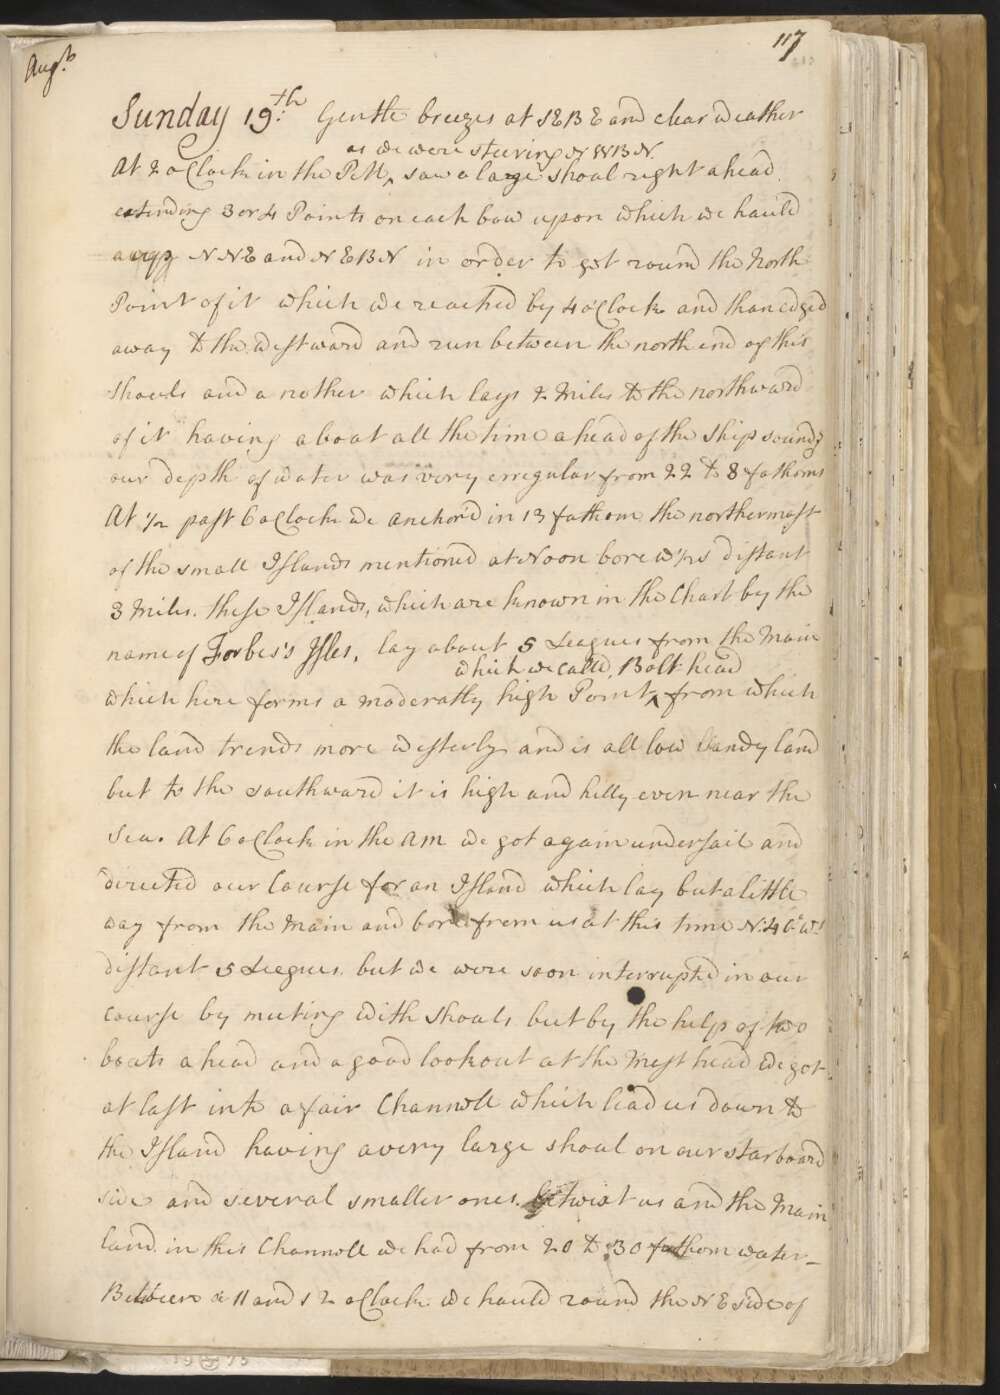 117
Augt.
Sunday 19th. Gentle breezes at SEBE and clear weather
as we were steering NWBN.
At 2 oClock in the PM ^ saw a large shoal right ahead
extending 3 or 4 Points on each bow upon which we hauld
away NNE and NEBN in order to get round the North
Point of it which we reached by 4 oClock and than edged
away to the westward and run between the north end of this
shoals and a nother which lays 2 Miles to the northward
of it having a boat all the time ahead of the Ship sounding
our depth of water was very erregular from 22 to 8 fathoms
At 1/2 past 6 oClock we anchor'd in 13 fathom the northermost
of the small Islands mentioned at Noon bore W1/2S distant
3 Miles. these Islands, which are known in the Chart by the
name of Forbes's Isles, lay about 5 Leagues from the Main
which we call'd, Bolt head
which here forms a moderatly high Point ^ from which
the land trends more westerly and is all low Sandy land
but to the southward it is high and hilly even near the
Sea. At 6 oClock in the AM we got again under sail and
directed our Course for an Island which lay but a little
way from the Main and bore from us at this time N. 40° Wt.
distant 5 Leagues. but we were soon interrupted in our
course by meeting with shoals but by the help of two
boats ahead and a good lookout at the Mast head we got
at last into a fair Channell which lead us down to
the Island having a very large shoal on our starboard
side and several smaller ones betwixt us and the Main
land. in this Channell we had from 20 to 30 fathom water_
Between 11 and 12 oClock we hauld round the NE side of